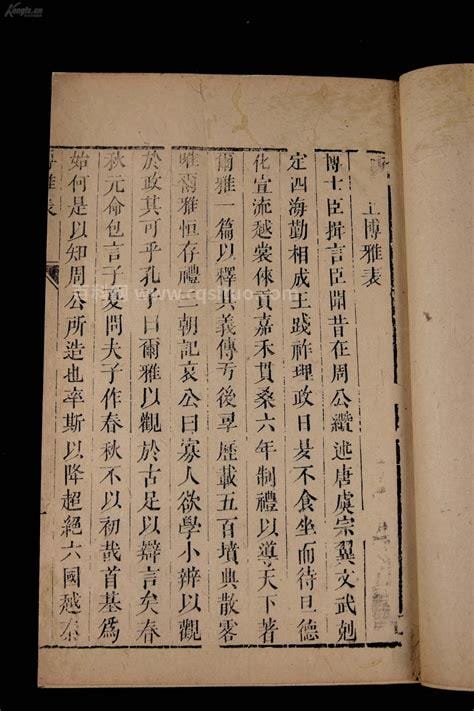 上博雅表
博士臣揖言臣聞昔在周公纘述唐虞宗翼文武剋
定四海勤相成王踐祚理政日昃不食坐而待旦德
化宣流越裳倈貢嘉禾貫桑六年制禮以導天下著
爾雅一篇以釋其義傳丂後孠歴載五百墳典散零
唯爾雅恒存禮三朝記哀公曰寡人欲學小辨以觀
於政其可乎孔子曰爾雅以觀於古足以辯言矣春
秋元命包言子夏問夫子作春秋不以初哉首基為
始何是以知周公所造也率斯以降超絕六國越秦
雅表